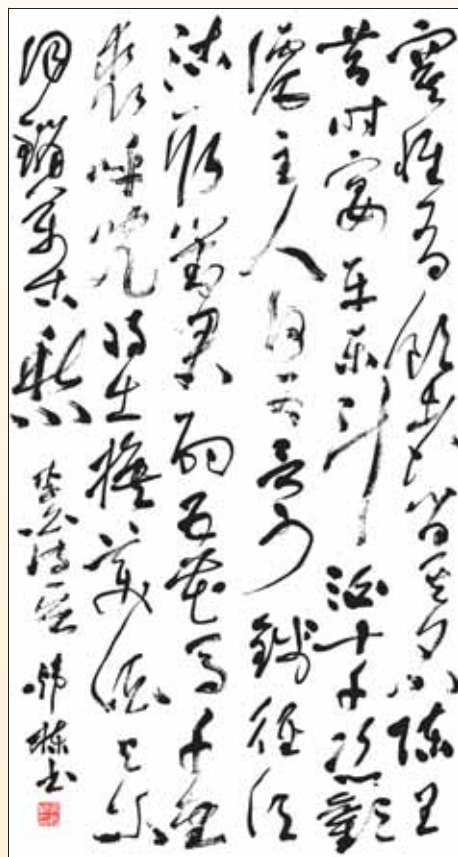 寞惟有飲者留其名陳王
昔时宴平樂斗酒十千恣歡
謔主人何为言少錢徑須
沽取對君酌五花馬千金
裘呼児将出換美酒与尔
同銷萬古愁 李白詩 書